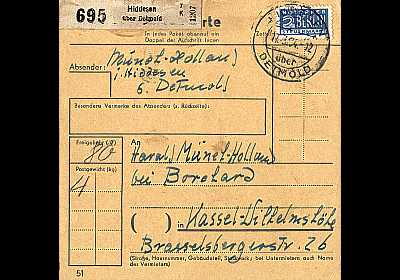 695
Hiddesen
über Detmold
11207
rte
In jedes Paket obenauf ein
Doppel der Aufschrift legen
NOTOPFER
2 BERLIN
STEUERMARKE
über
DETMOLD
Absender:
Münet-Hollan
i. Hiddesen
b. Detmold
Besondere Vermerke des Absenders (s. Rückseite):
Freigebühr
80
Postgewicht (kg)
4
An
Harald Münet-Hollan
bei Borchard
( ) in Kassel-Wilhelmshöhe
Brasselsbergerstr. 26
(Straße, Hausnummer, Gebäudeteil, Stockwerk; bei Untermietern auch Name
des Vermieters)
51